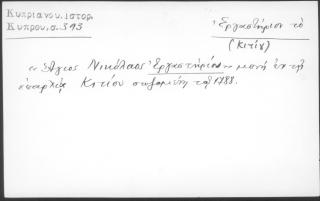 Κυπριανου.Ιστορ.
Κυπρου,σ.393
Ἐργαστήριον τὸ
(Κιτίου)
" Ἅγιος Νικόλαος Ἐργαστηρίου " μονὴ ἐν τῇ
ἐπαρχίᾳ Κιτίου σωζομένη τῷ 1788.